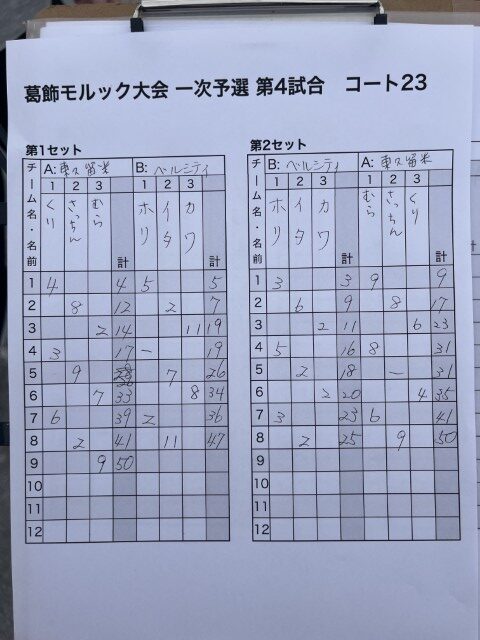 葛飾モルック大会 一次予選 第4試合 コート23
第1セット
チーム名・名前 A: 東久留米 B: ベルシティ
1 2 3 1 2 3
くり さっちん むら 計 ホリ イタ カワ 計
1 4 4 5 5
2 8 12 2 7
3 2 14 11 19
4 3 17 - 19
5 9 26 7 26
6 7 33 8 34
7 6 39 2 36
8 2 41 11 47
9 9 50
10
11
12
第2セット
チーム名・名前 B: ベルシティ A: 東久留米
1 2 3 1 2 3
ホリ イタ カワ 計 むら さっちん くり 計
1 3 3 9 9
2 6 9 8 17
3 2 11 6 23
4 5 16 8 31
5 2 18 - 31
6 2 20 4 35
7 3 23 6 41
8 2 25 9 50
9
10
11
12